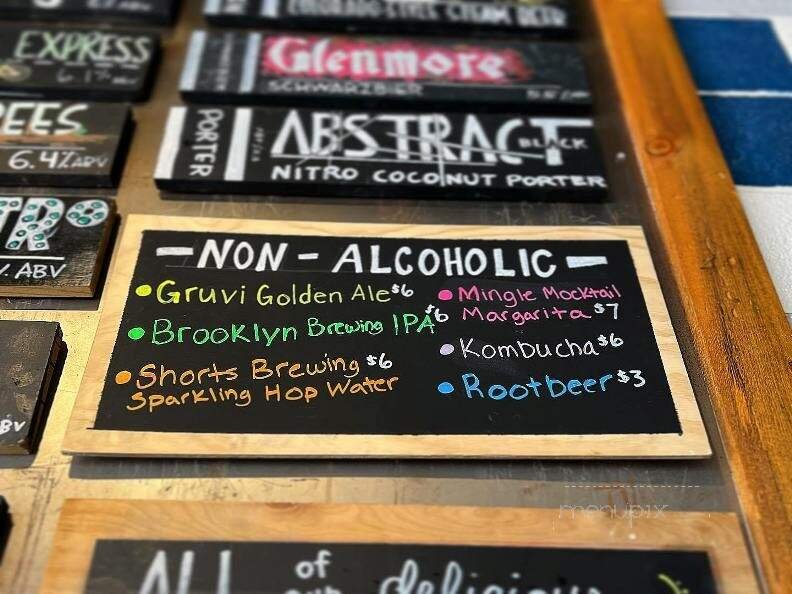 COLORADO-STYLE CREAM BEER
EXPRESS
6.1% ABV
Glenmore
SCHWARZBIER
EES
6.4% ABV
PORTER
ABSTRACT
BLACK
NITRO COCONUT PORTER
TRO
% ABV
-NON-ALCOHOLIC-
•Gruvi Golden Ale $6
•Brooklyn Brewing IPA $6
•Shorts Brewing $6
Sparkling Hop Water
•Mingle Mocktail
Margarita $7
•Kombucha $6
•Rootbeer $3
BV
menupix
ALL of our delicious